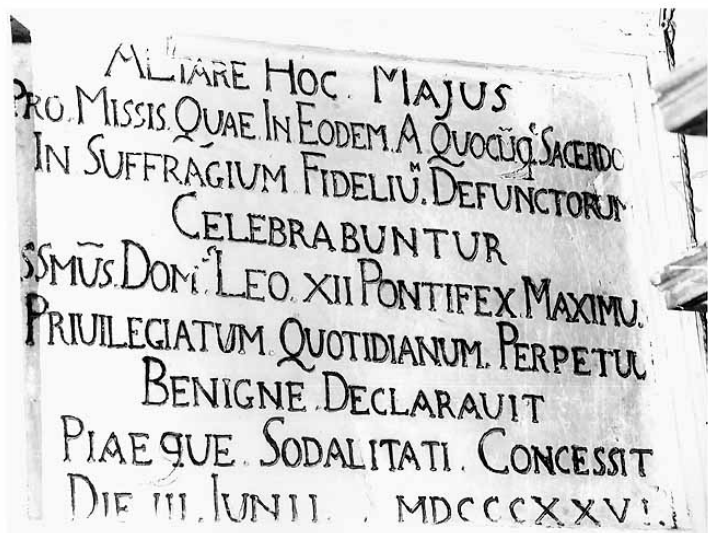 ALTARE HOC MAJUS
PRO. MISSIS. QUAE. IN EODEM. A QUOCŨQ. SACERDO
IN SUFFRAGIUM FIDELIŨ. DEFUNCTORUM
CELEBRABUNTUR
SSMŨS. DOM. LEO. XII PONTIFEX. MAXIMU.
PRIUILEGIATUM. QUOTIDIANUM. PERPETUU
BENIGNE. DECLARAUIT
PIAEQUE. SODALITATI. CONCESSIT
DIE III. IUNII. MDCCCXXVI.